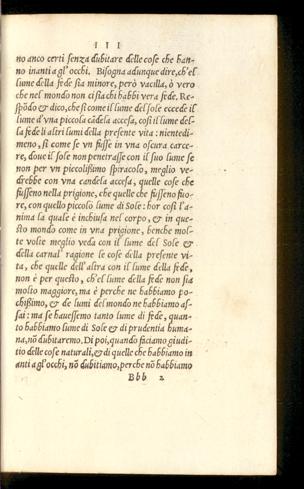 III
no anco certi senza dubitare delle cose che han-
no inanti a gl'occhi. Bisogna adunque dire, ch'el
lume della fede sia minore, però vacilla, ò vero
che nel mondo non ci sia chi habbi vera fede. Re-
spõdo & dico, che sì come il lume del sole eccede il
lume d'vna piccola cãdela accesa, così il lume del-
la fede li altri lumi della presente vita: nientedi-
meno, sì come se vn fusse in vna oscura carce-
re, doue il sole non penetrasse con il suo lume se
non per vn piccolissimo spiracolo, meglio ve-
drebbe con vna candela accesa, quelle cose che
fussero nella prigione, che quelle che fussero fuo-
re, con quello piccolo lume di Sole: hor così l'a-
nima la quale è inchiusa nel corpo, & in que-
sto mondo come in vna prigione, benche mol-
te volte meglio veda con il lume del Sole &
della carnal' ragione le cose della presente vi-
ta, che quelle dell'altra con il lume della fede,
non è per questo, ch'el lume della fede non sia
molto maggiore, ma è perche ne habbiamo po-
chissimo, & de lumi del mondo ne habbiamo as-
sai: ma se hauessemo tanto lume di fede, quan-
to habbiamo lume di Sole & di prudentia huma-
na, nõ dubitaremo. Di poi, quando faciamo giudi-
tio delle cose naturali, & di quelle che habbiamo in
anti a gl'occhi, nõ dubitiamo, perche nõ habbiamo
Bbb 2